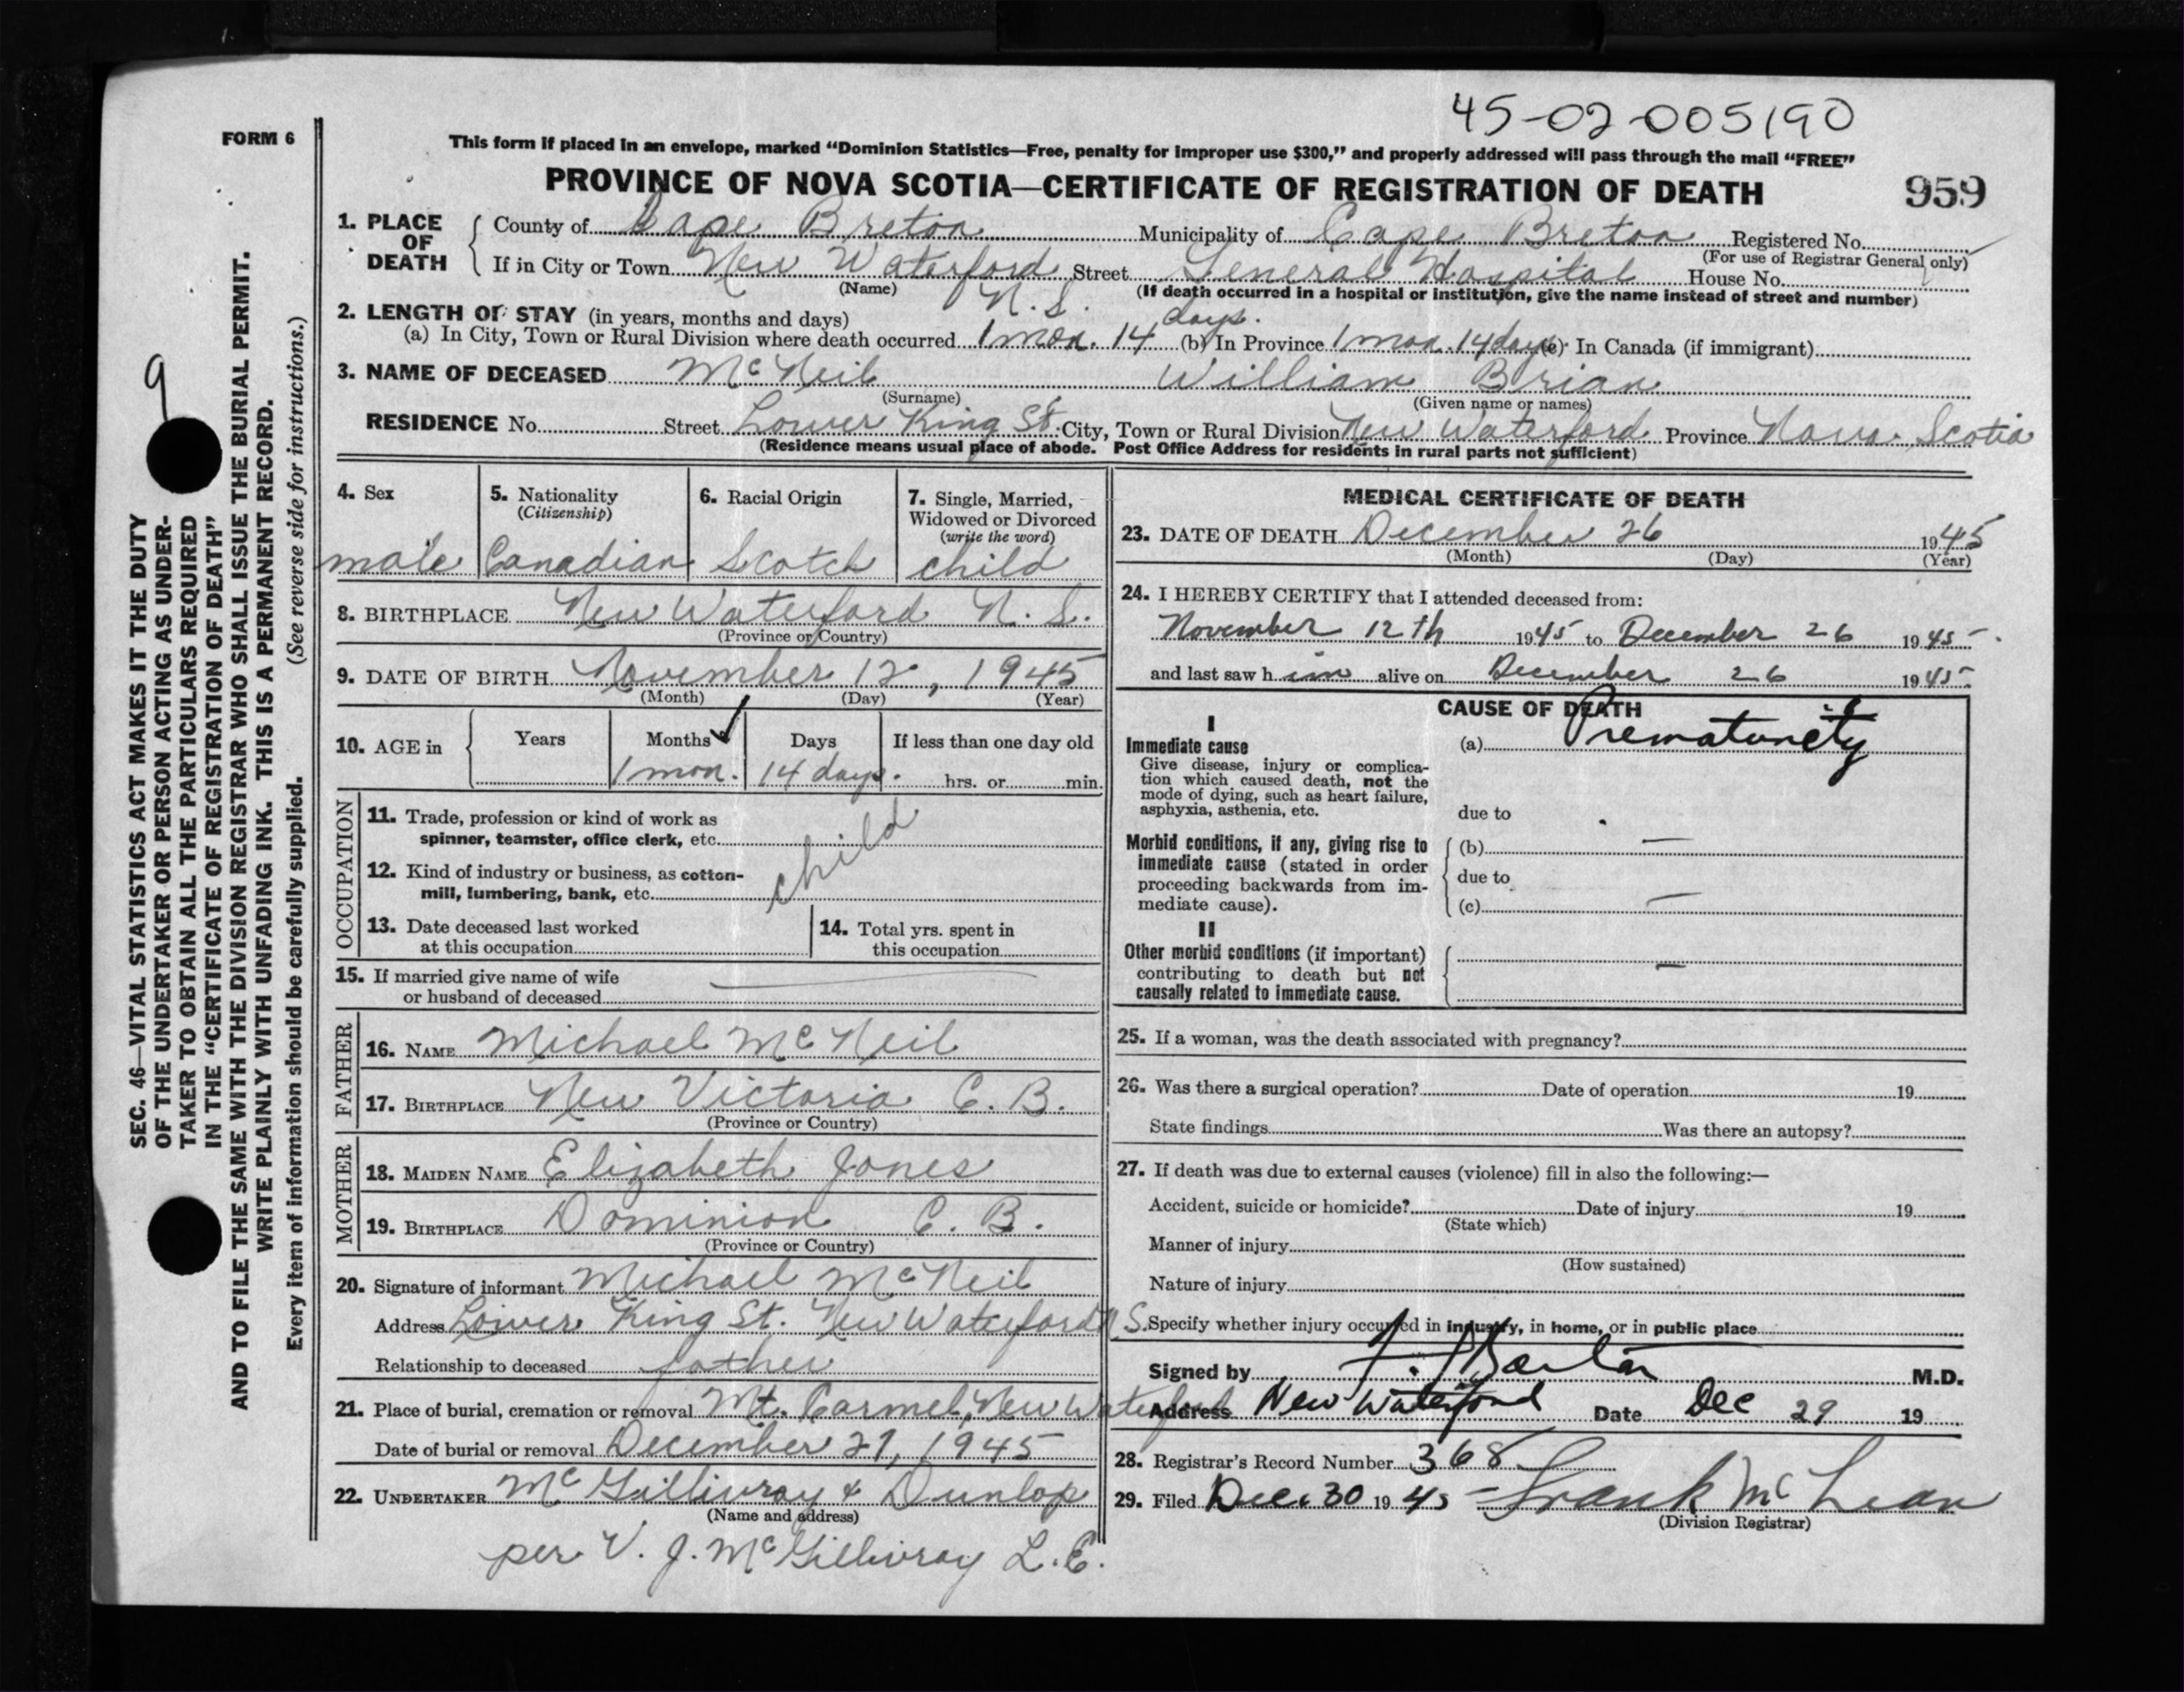 45-02-005190
FORM 6
This form if placed in an envelope, marked “Dominion Statistics—Free, penalty for improper use $300,” and properly addressed will pass through the mail “FREE”
PROVINCE OF NOVA SCOTIA—CERTIFICATE OF REGISTRATION OF DEATH
959
1. PLACE OF DEATH
County of Cape Breton Municipality of Cape Breton Registered No.
(For use of Registrar General only)
If in City or Town New Waterford Street General Hospital House No.
(Name) N.S. (If death occurred in a hospital or institution, give the name instead of street and number)
2. LENGTH OF STAY (in years, months and days)
(a) In City, Town or Rural Division where death occurred 1 mon. 14 days. (b) In Province 1 mon. 14 days (c) In Canada (if immigrant)
3. NAME OF DECEASED McNeil William Brian
(Surname) (Given name or names)
RESIDENCE No. Street Lower King St. City, Town or Rural Division New Waterford Province Nova Scotia
(Residence means usual place of abode. Post Office Address for residents in rural parts not sufficient)
4. Sex
male
5. Nationality
(Citizenship)
Canadian
6. Racial Origin
Scotch
7. Single, Married,
Widowed or Divorced
(write the word)
child
8. BIRTHPLACE New Waterford N.S.
(Province or Country)
9. DATE OF BIRTH November 12, 1945
(Month) (Day) (Year)
10. AGE in Years Months Days If less than one day old
1 mon. 14 days. hrs. or min.
OCCUPATION
11. Trade, profession or kind of work as
spinner, teamster, office clerk, etc.
child
12. Kind of industry or business, as cotton-
mill, lumbering, bank, etc.
13. Date deceased last worked
at this occupation
14. Total yrs. spent in
this occupation
15. If married give name of wife
or husband of deceased
FATHER
16. NAME Michael McNeil
17. BIRTHPLACE New Victoria C.B.
(Province or Country)
MOTHER
18. MAIDEN NAME Elizabeth Jones
19. BIRTHPLACE Dominion C.B.
(Province or Country)
20. Signature of informant Michael McNeil
Address Lower King St. New Waterford N.S.
Relationship to deceased father
21. Place of burial, cremation or removal Mt. Carmel, New Waterford
Date of burial or removal December 27, 1945
22. UNDERTAKER McGillivray & Dunlop
(Name and address)
per V. J. McGillivray L.E.
MEDICAL CERTIFICATE OF DEATH
23. DATE OF DEATH December 26 1945
(Month) (Day) (Year)
24. I HEREBY CERTIFY that I attended deceased from:
November 12th 1945 to December 26 1945
and last saw him alive on December 26 1945
CAUSE OF DEATH
I
Immediate cause
Give disease, injury or complica-
tion which caused death, not the
mode of dying, such as heart failure,
asphyxia, asthenia, etc.
(a) Prematurity
due to
Morbid conditions, if any, giving rise to
immediate cause (stated in order
proceeding backwards from im-
mediate cause).
(b) —
due to
(c) —
II
Other morbid conditions (if important)
contributing to death but not
causally related to immediate cause.
—
25. If a woman, was the death associated with pregnancy?
26. Was there a surgical operation? Date of operation 19
State findings Was there an autopsy?
27. If death was due to external causes (violence) fill in also the following:—
Accident, suicide or homicide? Date of injury 19
(State which)
Manner of injury
(How sustained)
Nature of injury
Specify whether injury occurred in industry, in home, or in public place
Signed by M.D.
Address New Waterford Date Dec 29 19
28. Registrar's Record Number 368
29. Filed Dec. 30 1945 Frank McLean
(Division Registrar)
9
SEC. 46—VITAL STATISTICS ACT MAKES IT THE DUTY
OF THE UNDERTAKER OR PERSON ACTING AS UNDER-
TAKER TO OBTAIN ALL THE PARTICULARS REQUIRED
IN THE “CERTIFICATE OF REGISTRATION OF DEATH”
AND TO FILE THE SAME WITH THE DIVISION REGISTRAR WHO SHALL ISSUE THE BURIAL PERMIT.
WRITE PLAINLY WITH UNFADING INK. THIS IS A PERMANENT RECORD.
Every item of information should be carefully supplied. (See reverse side for instructions.)